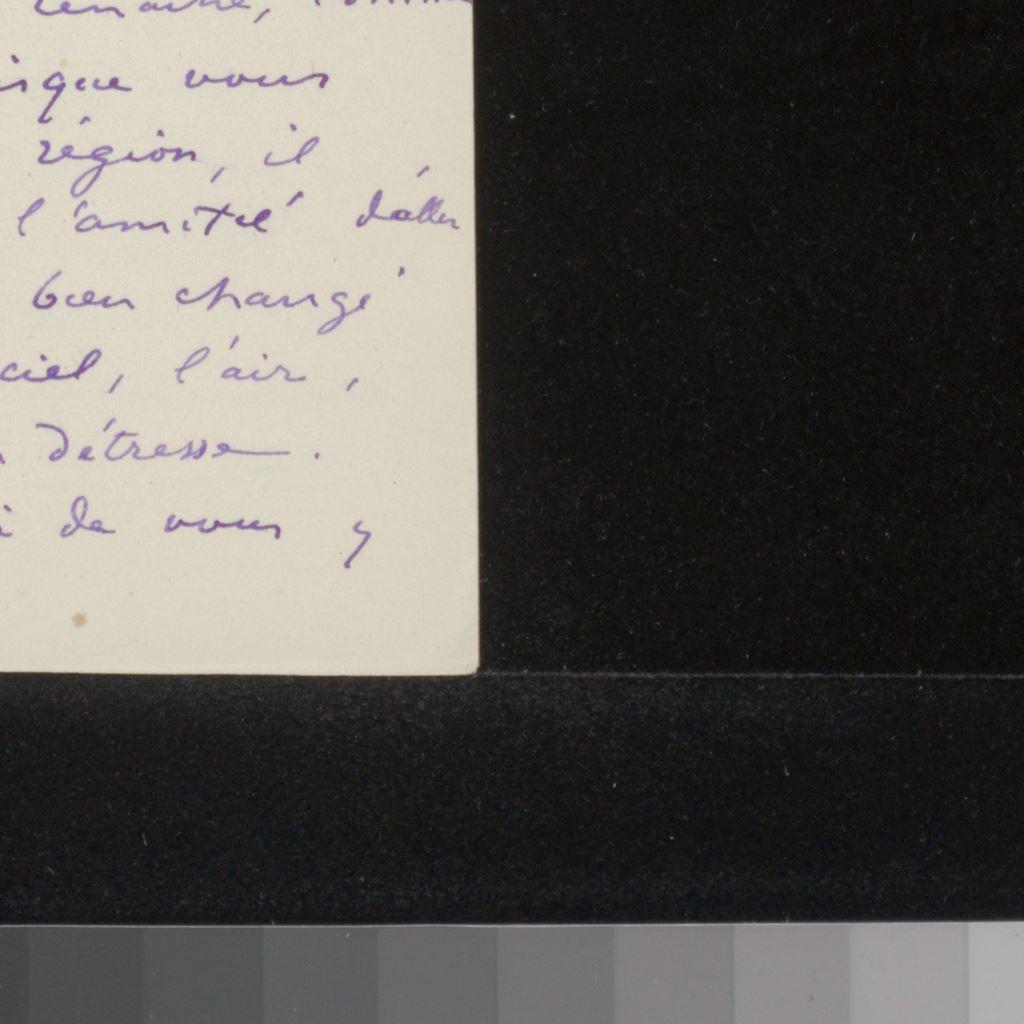 vous
région, il
l'amitié d'aller
bien changé
ciel, l'air,
détresse.
de vous y